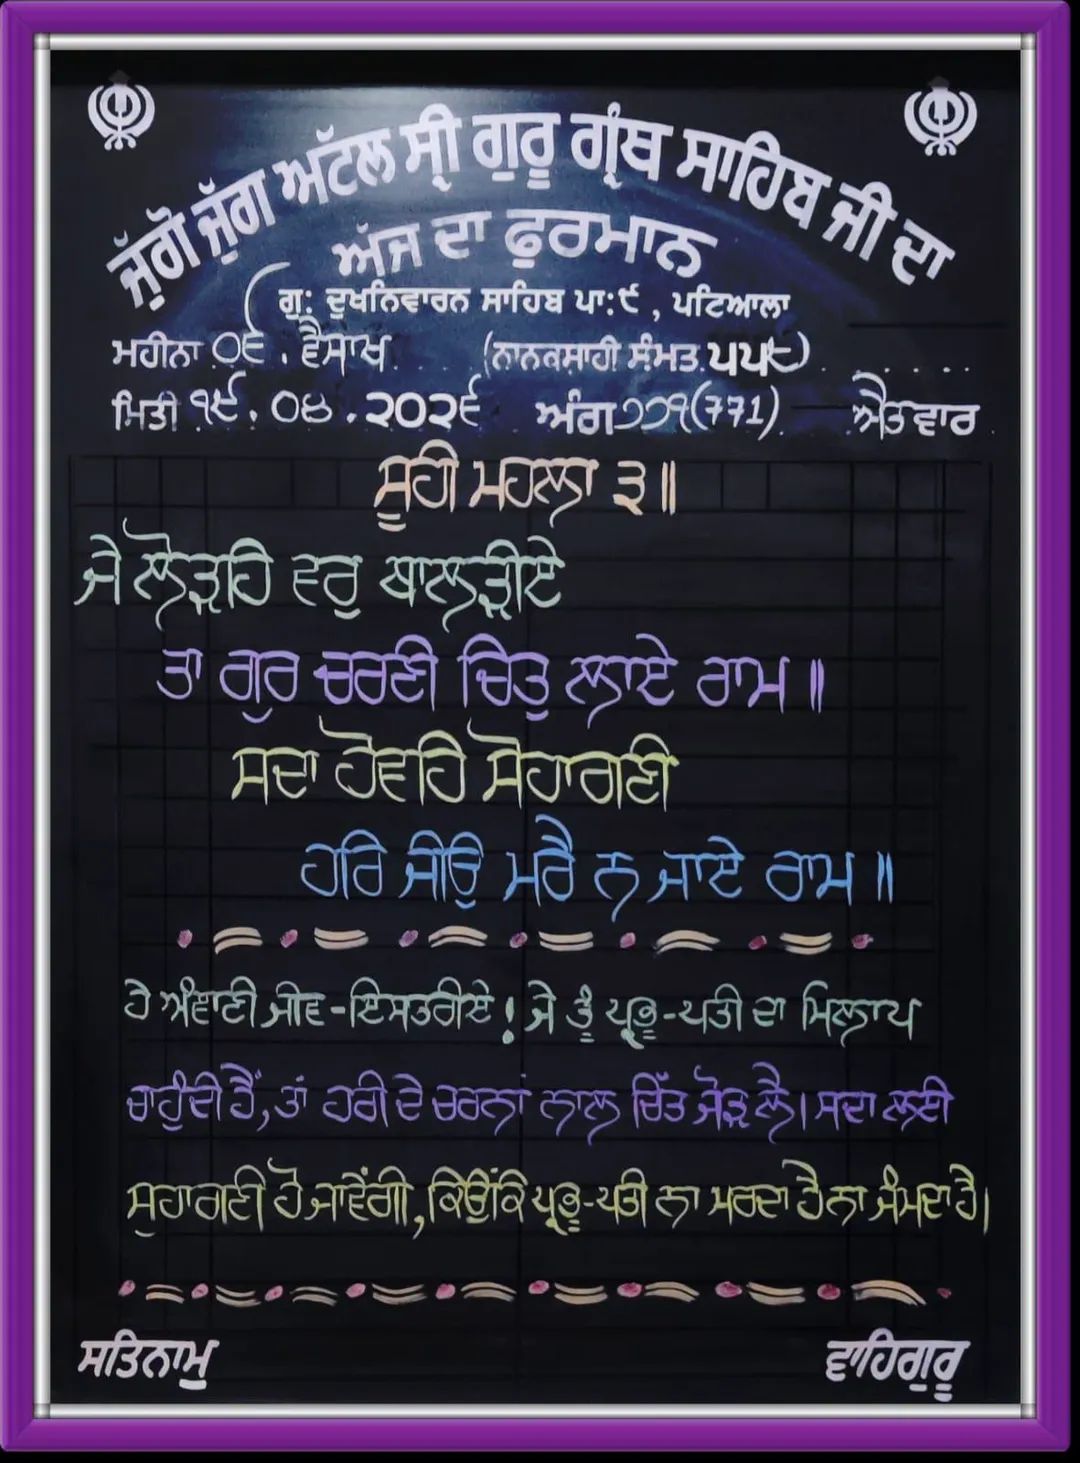 ਜੁੱਗੋ ਜੁੱਗ ਅਟੱਲ ਸ੍ਰੀ ਗੁਰੂ ਗ੍ਰੰਥ ਸਾਹਿਬ ਜੀ ਦਾ
ਅੱਜ ਦਾ ਫੁਰਮਾਨ
ਗੁ: ਦੁਖਨਿਵਾਰਨ ਸਾਹਿਬ ਪਾ:੯, ਪਟਿਆਲਾ
ਮਹੀਨਾ ੦੬. ਵੈਸਾਖ (ਨਾਨਕਸਾਹੀ ਸੰਮਤ ੫੫੮)
ਮਿਤੀ ੧੯.੦੪.੨੦੨੬ ਅੰਗ ੭੭੧(771) ਐਤਵਾਰ
ਸੂਹੀ ਮਹਲਾ ੩॥
ਜੇ ਲੋੜਹਿ ਵਰੁ ਬਾਲੜੀਏ
ਤਾ ਗੁਰ ਚਰਣੀ ਚਿਤੁ ਲਾਏ ਰਾਮ॥
ਸਦਾ ਹੋਵਹਿ ਸੋਹਾਗਣੀ
ਹਰਿ ਜੀਉ ਮਰੈ ਨ ਜਾਏ ਰਾਮ॥
ਹੇ ਅੰਞਾਣੀ ਜੀਵ-ਇਸਤਰੀਏ! ਜੇ ਤੂੰ ਪ੍ਰਭੂ-ਪਤੀ ਦਾ ਮਿਲਾਪ
ਚਾਹੁੰਦੀ ਹੈਂ, ਤਾਂ ਹਰੀ ਦੇ ਚਰਨਾਂ ਨਾਲ ਚਿੱਤ ਜੋੜ ਲੈ। ਸਦਾ ਲਈ
ਸੁਹਾਗਣੀ ਹੋ ਜਾਵੇਂਗੀ, ਕਿਉਂਕਿ ਪ੍ਰਭੂ-ਪਤੀ ਨਾ ਮਰਦਾ ਹੈ ਨਾ ਜੰਮਦਾ ਹੈ।
ਸਤਿਨਾਮੁ ਵਾਹਿਗੁਰੂ